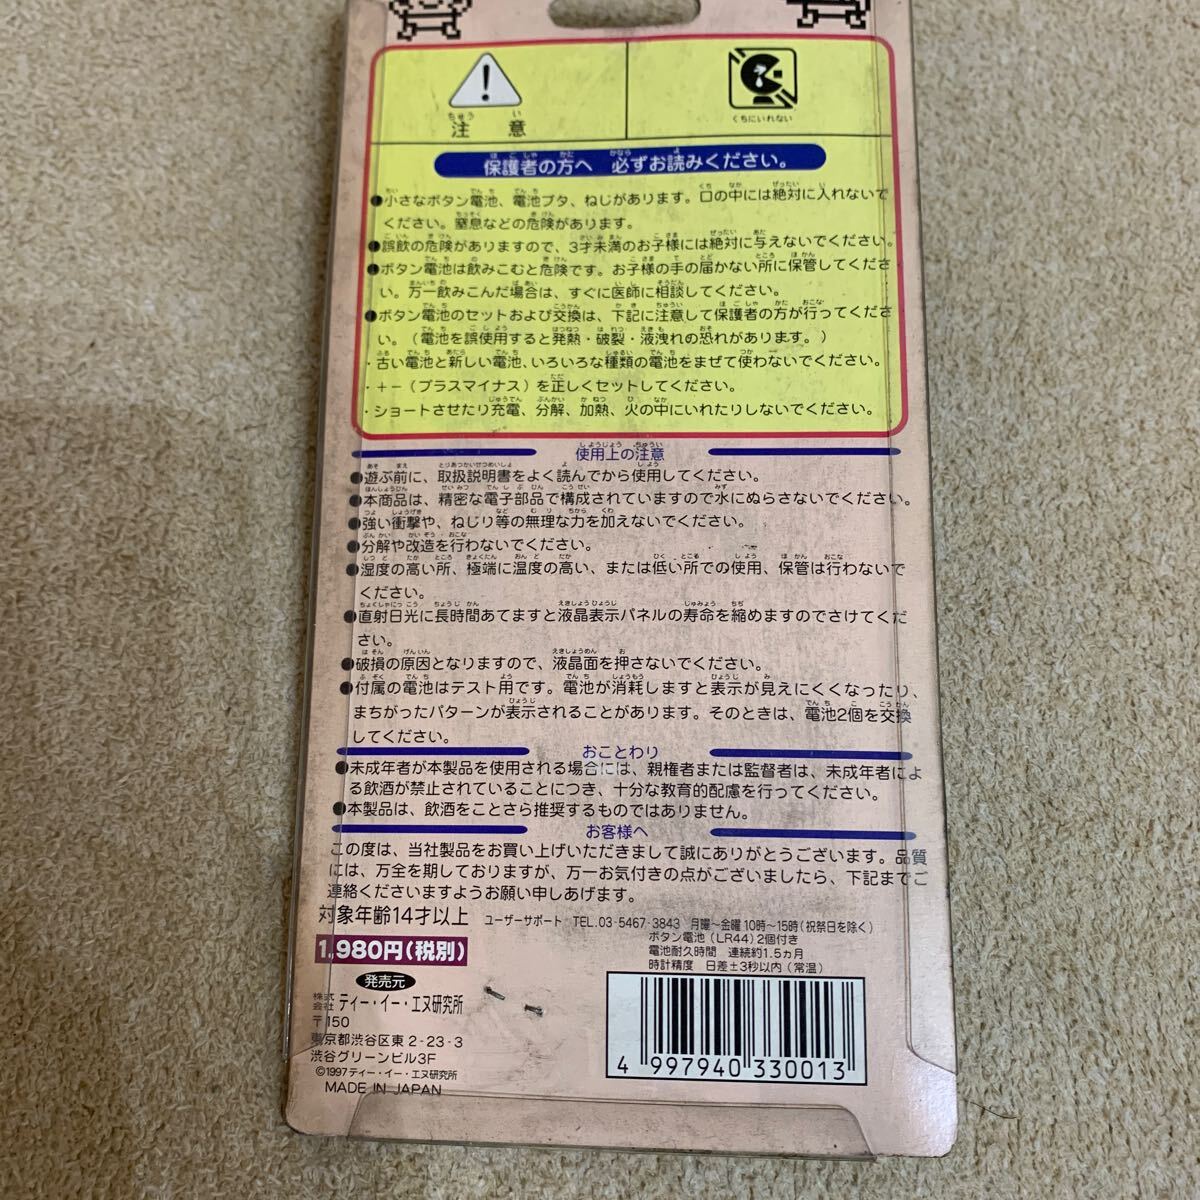 注意
くちにいれない
保護者の方へ 必ずお読みください。
●小さなボタン電池、電池ブタ、ねじがあります。口の中には絶対に入れないで
ください。窒息などの危険があります。
●誤飲の危険がありますので、3才未満のお子様には絶対に与えないでください。
●ボタン電池は飲みこむと危険です。お子様の手の届かない所に保管してくださ
い。万一飲みこんだ場合は、すぐに医師に相談してください。
●ボタン電池のセットおよび交換は、下記に注意して保護者の方が行ってくださ
い。(電池を誤使用すると発熱・破裂・液洩れの恐れがあります。)
・古い電池と新しい電池、いろいろな種類の電池をまぜて使わないでください。
・+−(プラスマイナス)を正しくセットしてください。
・ショートさせたり充電、分解、加熱、火の中にいれたりしないでください。
使用上の注意
●遊ぶ前に、取扱説明書をよく読んでから使用してください。
●本商品は、精密な電子部品で構成されていますので水にぬらさないでください。
●強い衝撃や、ねじり等の無理な力を加えないでください。
●分解や改造を行わないでください。
●湿度の高い所、極端に温度の高い、または低い所での使用、保管は行わないで
ください。
●直射日光に長時間あてますと液晶表示パネルの寿命を縮めますのでさけてくだ
さい。
●破損の原因となりますので、液晶面を押さないでください。
●付属の電池はテスト用です。電池が消耗しますと表示が見えにくくなったり、
まちがったパターンが表示されることがあります。そのときは、電池2個を交換
してください。
おことわり
●未成年者が本製品を使用される場合には、親権者または監督者は、未成年者によ
る飲酒が禁止されていることにつき、十分な教育的配慮を行ってください。
●本製品は、飲酒をことさら推奨するものではありません。
お客様へ
この度は、当社製品をお買い上げいただきまして誠にありがとうございます。品質
には、万全を期しておりますが、万一お気付きの点がございましたら、下記までご
連絡くださいますようお願い申しあげます。
対象年齢14才以上 ユーザーサポート TEL.03-5467-3843 月曜〜金曜10時〜15時(祝祭日を除く)
1,980円(税別)
ボタン電池(LR44)2個付き
電池耐久時間 連続約1.5ヵ月
時計精度 日差±3秒以内(常温)
発売元
株式会社 ティー・イー・エヌ研究所
〒150
東京都渋谷区東2-23-3
渋谷グリーンビル3F
©1997ティー・イー・エヌ研究所
MADE IN JAPAN
4 997940 330013